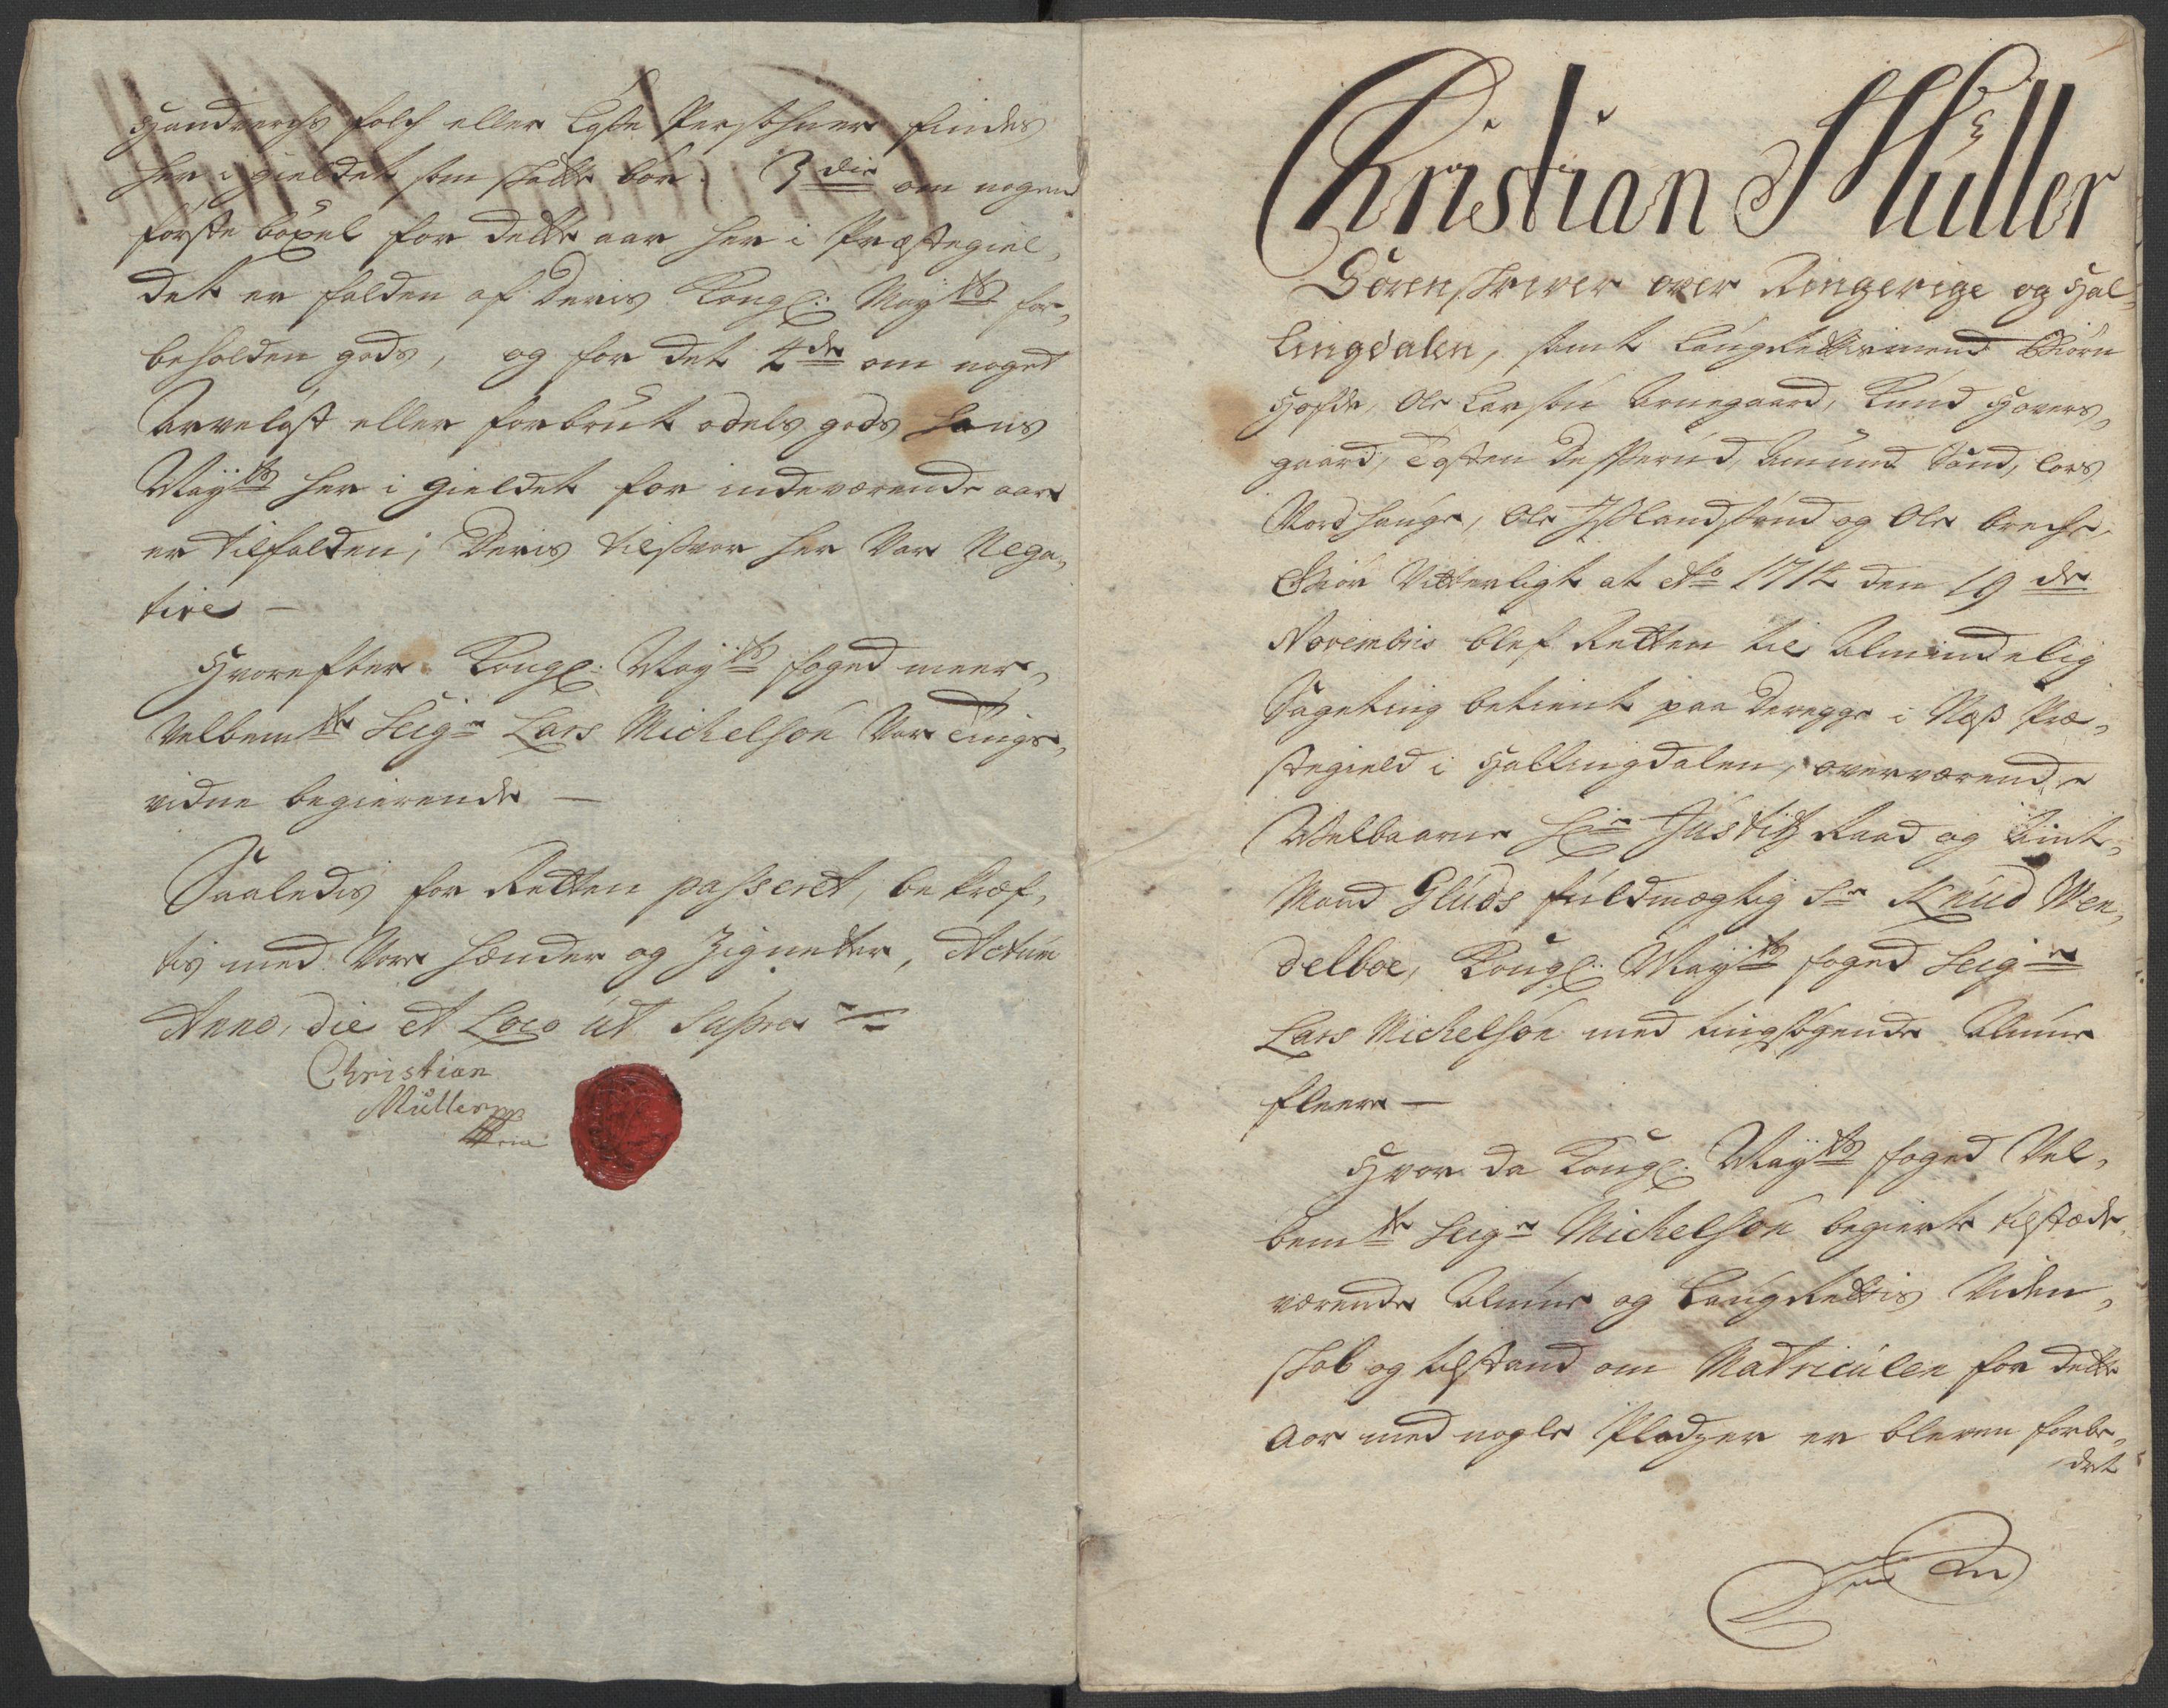 Handverchs folch eller løse Persohner findes
her i gieldet som schatte bør. 3die om nogen
første bøxel for dette aar her i Præstegiel,
det er falden af Deris Kongl: Mayts for,
beholden gods, og for det 4de om noget
Arveløst eller forbrut odels gods Hans
Mayts her i gieldet for indeværende aar
er tilfalden; Deris tilsvar her Var Nega,
tive —
Hvorefter Kongl: Mayts foged meer,
Velbemte Seigr Lars Michelsøn Var Tings,
vidne begierende —
Saaledis for Retten passeret, bekræf,
tis med Vore hænder og Zignetter, Actum
Anno, die et Loco ut Supra
Christian
Müller
Christian Müller
Sorenskriver over Ringerige og Hal,
lingdalen, samt Laugrettismend Biørn
Hofde, Ole Larsøn Arnegaard, Knud Hovers,
gaard, Tosten Desserud, Amund Sund, Lars
Nordhauge, Ole Islandsrud og Ole Breche,
Giør Vitterligt at Ao 1714 den 19de
Novembris blef Retten til Almindelig
Sageting betient paa Deregge i Næss Præ,
stegield i Hallingdalen, overværende
Welbaarne Hr Justitz Raad og Amt,
Mand Gluds fuldmægtig Sr Knud Wen,
delboe, Kongl: Mayts foged Seigr
Lars Michelsøn med tingsøgende Almue
fleere —
Hvor da Kongl: Mayts foged Vel,
bemte Seigr Michelsøn begierte tilstæde,
værende Almue og Laugrettis Viden,
skab og tilstand om Matriculen for dette
Aar med nogle Pladzer er bleven forbe,
dret